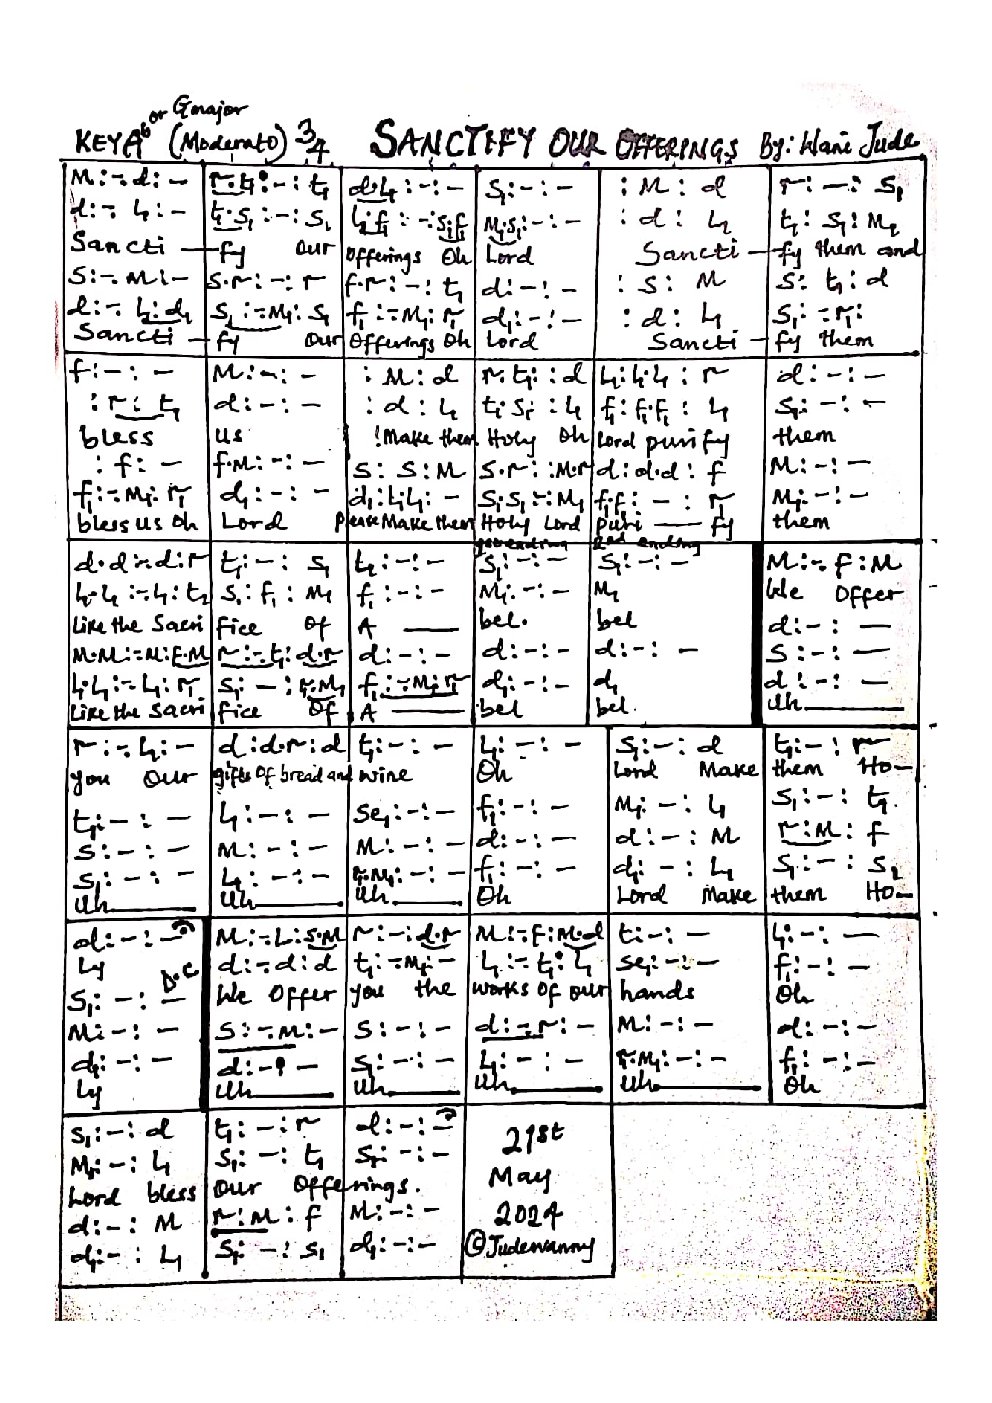 KEY Ab or Gmajor (Moderato) 3/4 SANCTIFY OUR OFFERINGS By: Wani Jude
M:-.d:- | r.t₁:-:t₁ | d.l₁:-:- | s₁:-:- | :M:d | r:-:s₁
d:-.l₁:- | t₁.s₁:-:s₁ | l₁.f₁:-:s₁.f₁ | M₁.s₁:-:- | :d:l₁ | t₁:s₁:M₁
Sancti — fy Our Offerings Oh Lord Sancti — fy them and
S:-.M:- | s.r:-:r | f.r:-:t₁ | d:-:- | :s:M | s:t₁:d
d:-.l₁:d₁ | s₁:-.M₁:s₁ | f₁:-.M₁:r₁ | d₁:-:- | :d:l₁ | s₁:-.r₁:
Sancti — fy Our Offerings Oh Lord Sancti — fy them
f:-:- | M:-:- | :M:d | r.t₁::d | l₁:l₁.l₁:r | d:-:-
:r:t₁ | d:-:- | :d:l₁ | t₁.s₁::l₁ | f₁:f₁.f₁:l₁ | s₁:-:-
bless us !Make them Holy Oh Lord purify them
:f:- | f.M:-:- | s:s:M | s.r::M.r | d:d.d:f | M:-:-
f₁:-.M₁:r₁ | d₁:-:- | d₁:l₁.l₁:- | s₁.s₁:-:M₁ | f₁.f₁:-:r₁ | M₁:-:-
bless us Oh Lord Please Make them Holy Lord puri — fy them
1st ending 2nd ending
d.d:-.d:r | t₁:-:s₁ | t₁:-:- | s₁:-:- | s₁:-:- | M:-.f:M
l₁.l₁:-.l₁:t₁ | s₁:f₁:M₁ | f₁:-:- | M₁:-:- | M₁ | We Offer
Like the Sacri fice Of A — bel. bel | d:-:-
M.M:-.M:f.M | r:-.t₁:d.r | d:-:- | d:-:- | d:-:- | s:-:-
l₁.l₁:-.l₁:r₁ | s₁:-:r₁.M₁ | f₁:-.M₁:r₁ | d₁:-:- | d₁ | d:-:-
Like the Sacri fice Of A — bel bel. Uh
r:-.l₁:- | d:d.r:d | t₁:-:- | l₁:-:- | s₁:-:d | t₁:-:r
you Our gifts of bread and wine Oh Lord Make them Ho—
t₁:-:- | l₁:-:- | se₁:-:- | f₁:-:- | M₁:-:l₁ | s₁:-:t₁
s:-:- | M:-:- | M:-:- | d:-:- | d:-:M | r:M:f
s₁:-:- | l₁:-:- | r₁.M₁:-:- | f₁:-:- | d₁:-:l₁ | s₁:-:s₁
Uh Uh Uh Oh Lord Make them Ho—
d:-:- | M:-.l:s.M | r:-:d.r | M:-.f:M.d | t₁:-:- | l₁:-:-
ly D.C | d:-.d:d | t₁:-.M₁:- | l₁:-.t₁:l₁ | se₁:-:- | f₁:-:-
s₁:-:- | We Offer you the works of our hands Oh
M:-:- | s:-.M:- | s:-:- | d:-.r:- | M:-:- | d:-:-
d₁:-:- | d:-:- | s₁:-:- | l₁:-:- | r₁.M₁:-:- | f₁:-:-
ly Uh Uh Uh Uh Oh
s₁:-:d | t₁:-:r | d:-:-
M₁:-:l₁ | s₁:-:t₁ | s₁:-:-
Lord bless Our Offerings.
d:-:M | r:M:f | M:-:-
d₁:-:l₁ | s₁:-:s₁ | d₁:-:-
21st
May
2024
© Judewanny